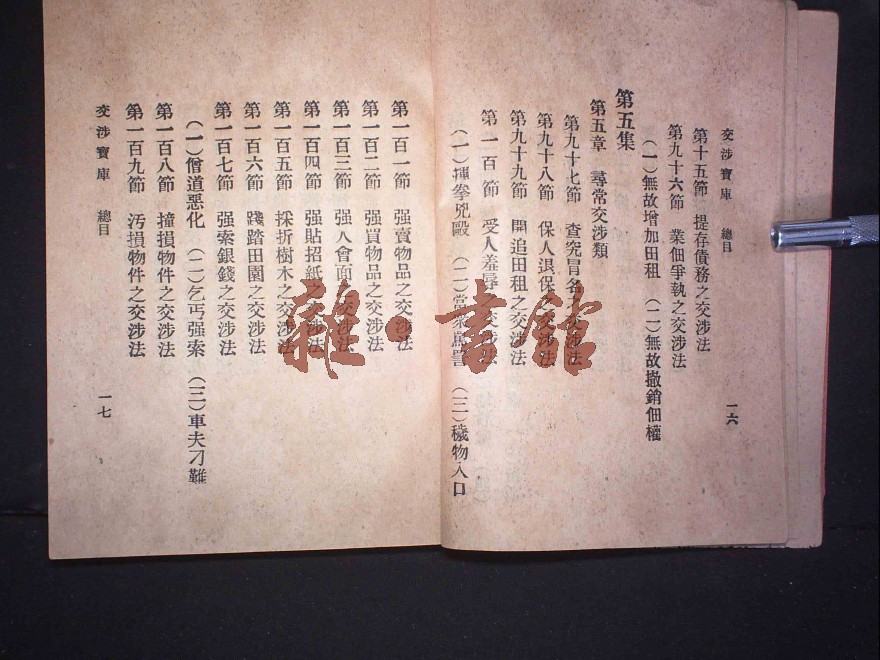 交涉寶庫　總目　一六
第十五節　提存債務之交涉法
第九十六節　業佃爭執之交涉法
（一）無故增加田租　（二）無故撤銷佃權
第五集
第五章　尋常交涉類
第九十七節　查究冒名之交涉法
第九十八節　保人退保之交涉法
第九十九節　開追田租之交涉法
第一百節　受人羞辱之交涉法
（一）揮拳兇毆　（二）當衆罵詈　（三）穢物入口
第一百一節　强賣物品之交涉法
第一百二節　强買物品之交涉法
第一百三節　强人會面之交涉法
第一百四節　强貼招紙之交涉法
第一百五節　採折樹木之交涉法
第一百六節　踐踏田園之交涉法
第一百七節　强索銀錢之交涉法
（一）僧道惡化　（二）乞丐强索　（三）車夫刁難
第一百八節　撞損物件之交涉法
第一百九節　汚損物件之交涉法
交涉寶庫　總目　一七
雜·書館